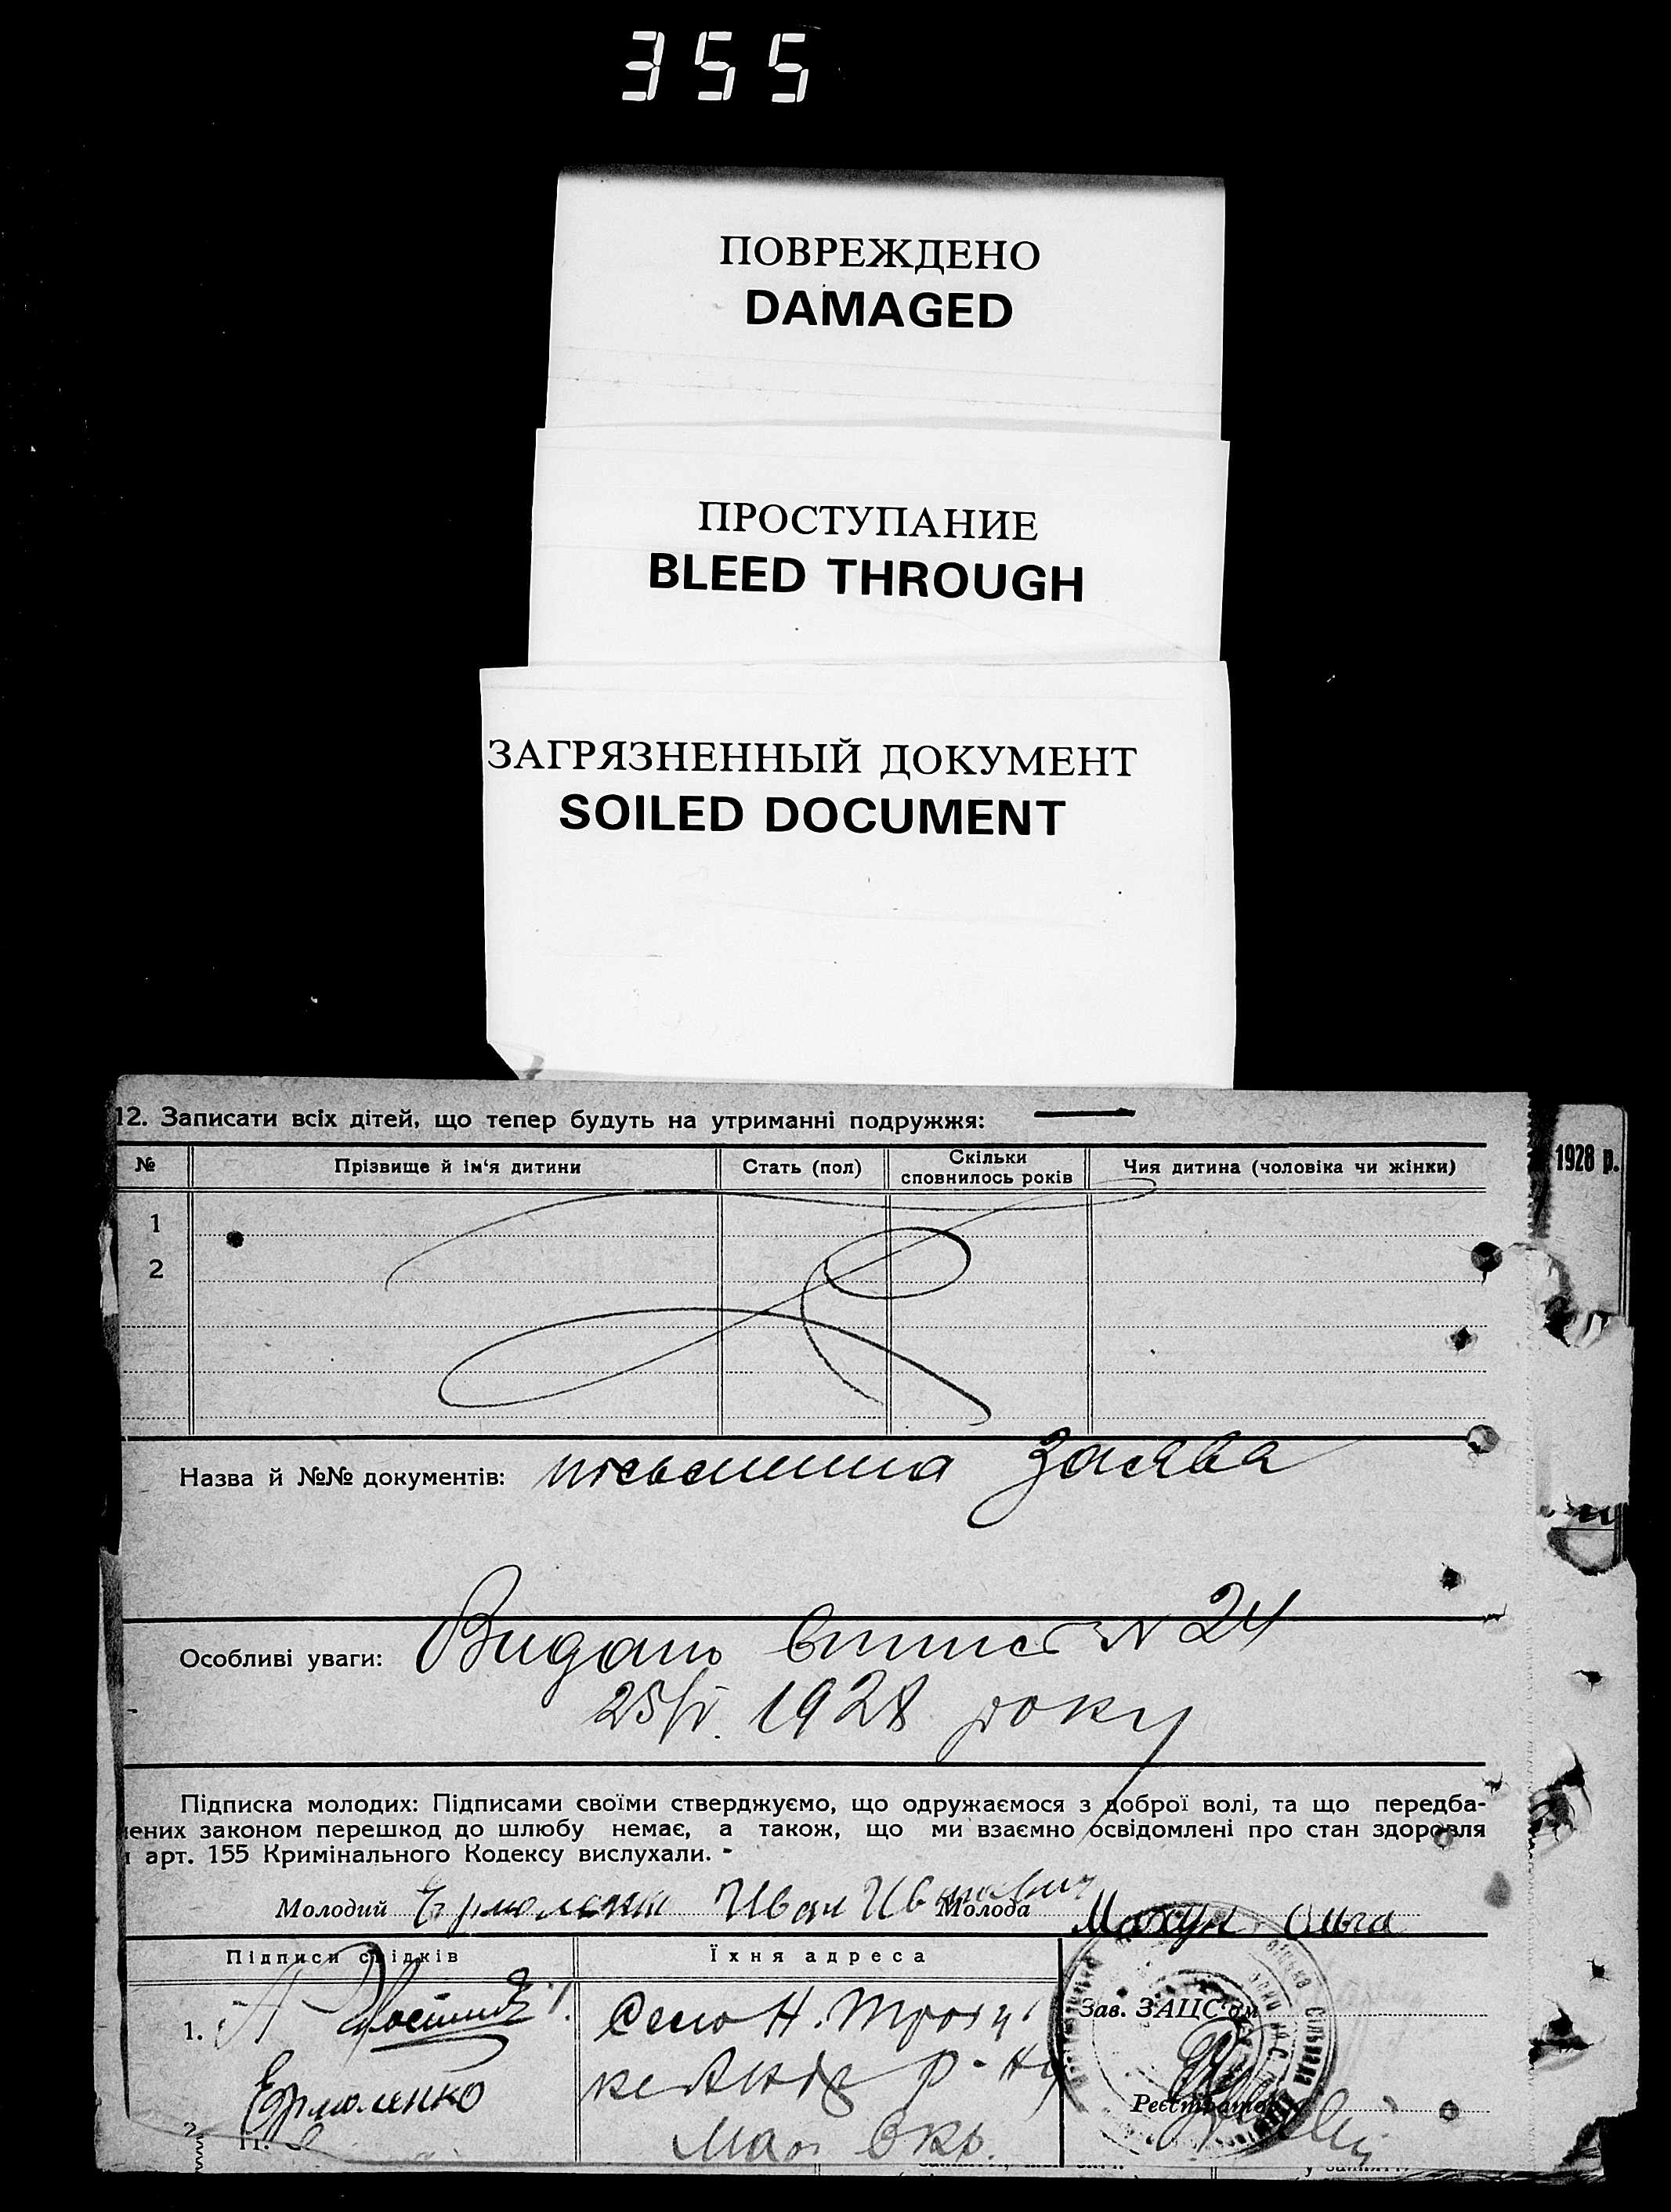 355
ПОВРЕЖДЕНО
DAMAGED
ПРОСТУПАНИЕ
BLEED THROUGH
ЗАГРЯЗНЕННЫЙ ДОКУМЕНТ
SOILED DOCUMENT
12. Записати всіх дітей, що тепер будуть на утриманні подружжя:
1928 р.
№ Прізвище й ім'я дитини Стать (пол) Скільки сповнилось років Чия дитина (чоловіка чи жінки)
1
2
Назва й №№ документів: письменна Заява
Особливі уваги: Видано випис N 24
1928 року
Підписка молодих: Підписами своїми стверджуємо, що одружаємося з доброї волі, та що передба-
чених законом перешкод до шлюбу немає, а також, що ми взаємно освідомлені про стан здоровля
арт. 155 Кримінального Кодексу вислухали.
Молодий Ермоленко Иван Иванович Молода Махун Ольга
Підписи свідків Їхня адреса
1. Село Н.
Зав. ЗАЦС'ом
Ермоленко р-ну
Реєстратор
2. Окр.